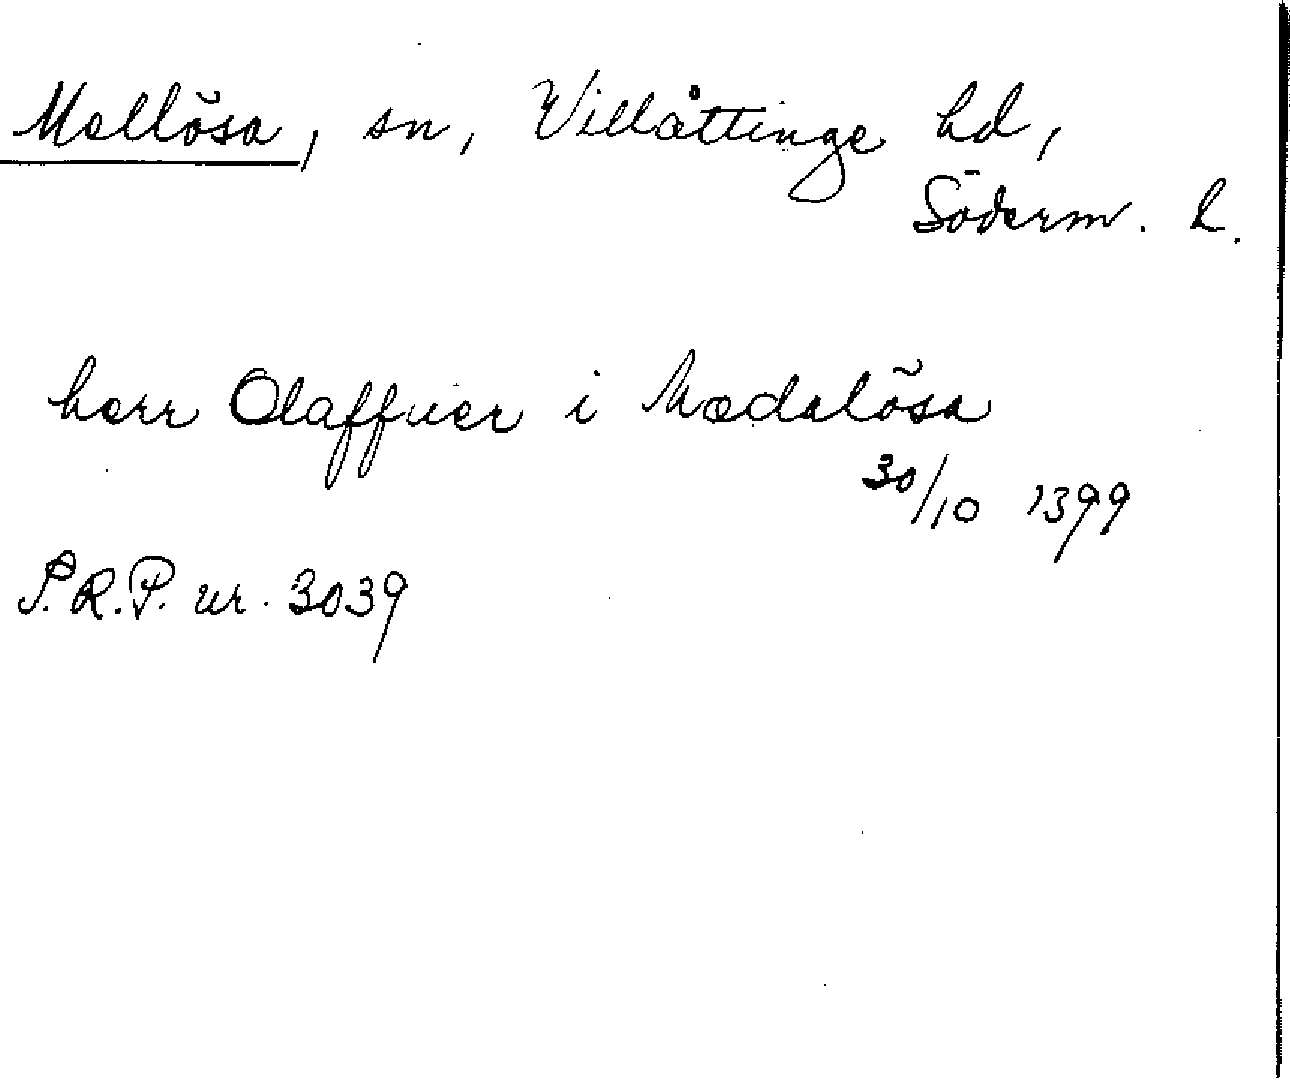 Mellösa, sn, Villåttinge hd,
Söderm. l.
herr Olaffuer i Mædalösa
30/10 1399
S.R.P. nr. 3039